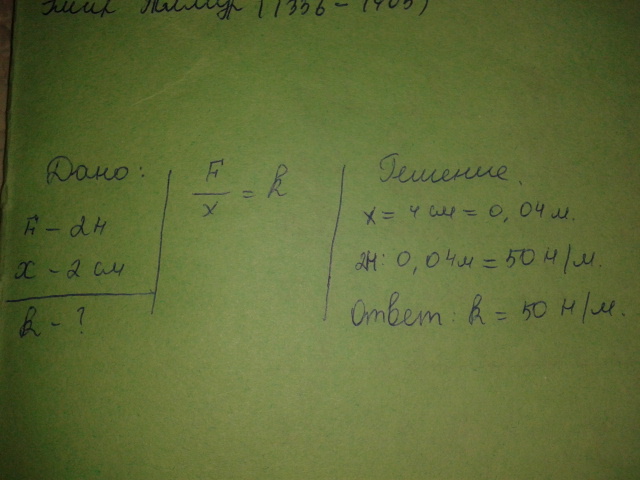 Эмир Тимур (1336 - 1405)
Дано:
F - 2Н
x - 2 см
k - ?
F
x
= k
Решение.
x = 4 см = 0,04 м.
2Н : 0,04 м = 50 Н/м.
Ответ: k = 50 Н/м.